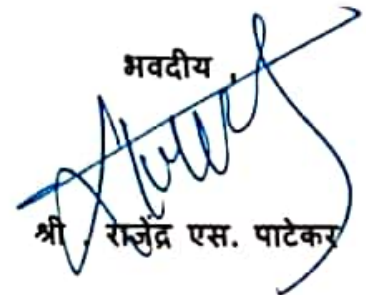 भवदीय
श्री . राजेंद्र एस. पाटेकर